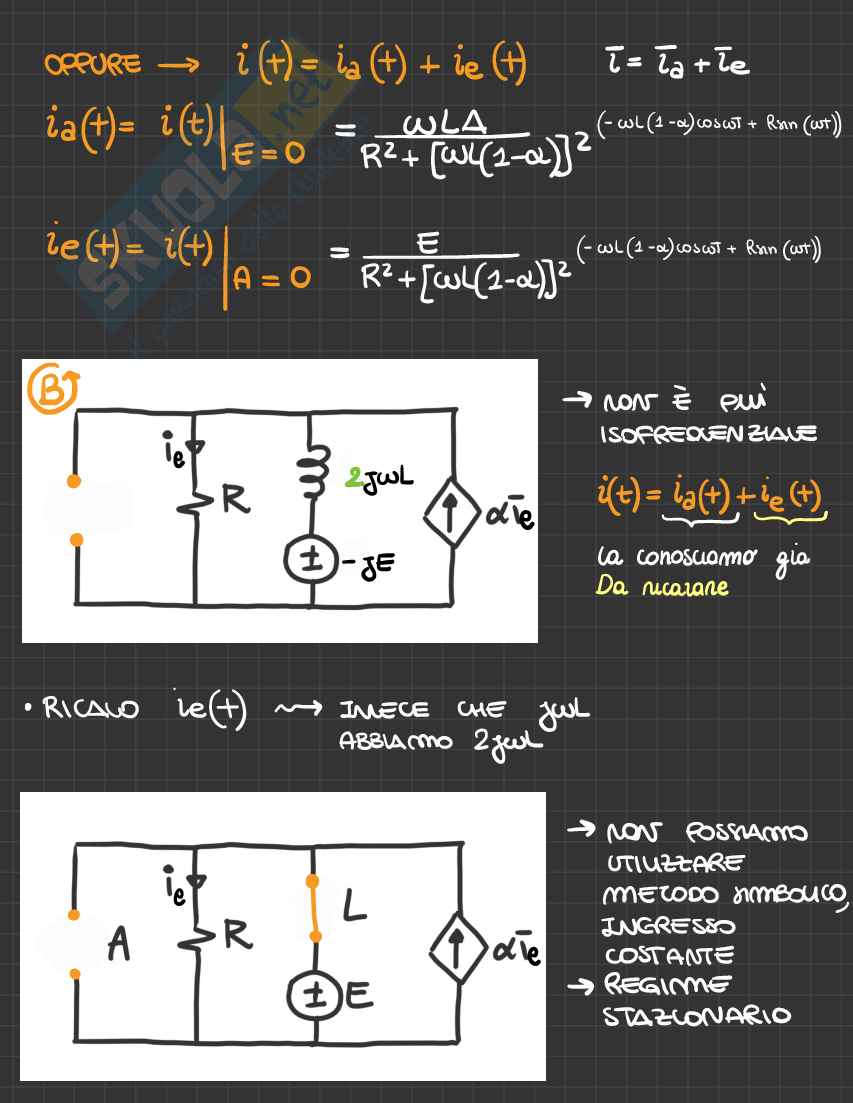 OPPURE → i(t) = ia(t) + ie(t) ī = īa + īe
ia(t) = i(t)|E=0 = ωLA / R² + [ωL(1-α)]² (-ωL(1-α)cosωt + Rsin(ωt))
ie(t) = i(t)|A=0 = E / R² + [ωL(1-α)]² (-ωL(1-α)cosωt + Rsin(ωt))
SKUOLA.net
B
ie
R
2jωL
± -jE
αīe
→ NON È PIÙ
ISOFREQUENZIALE
i(t) = ia(t) + ie(t)
la conosciamo già
Da ricavare
• RICALCO ie(t) ⇝ INVECE CHE jωL
ABBIAMO 2jωL
A
ie
R
L
± E
αīe
→ NON POSSIAMO
UTILIZZARE
METODO SIMBOLICO,
INGRESSO
COSTANTE
→ REGIME
STAZIONARIO